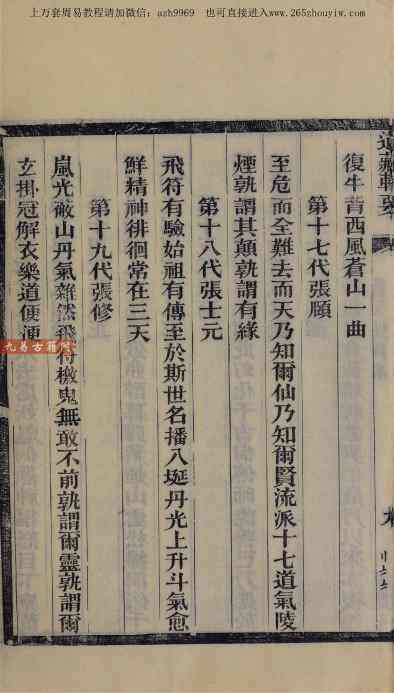 上万套周易教程请加微信：azh9969 也可直接进入www.265zhouyiw.com
道藏輯要
復牛背西風蒼山一曲
第十七代張順
至危而全難去而天乃知爾仙乃知爾賢流派十七道氣陵
煙孰謂其顛孰謂有緣
第十八代張士元
飛符有驗始祖有傳至於斯世名播八埏丹光上升斗氣愈
鮮精神徘徊常在三天
第十九代張修
嵐光蔽山丹氣雜然飛符檄鬼無敢不前孰謂爾靈孰謂爾
玄掛冠解衣樂道便便
九易古籍